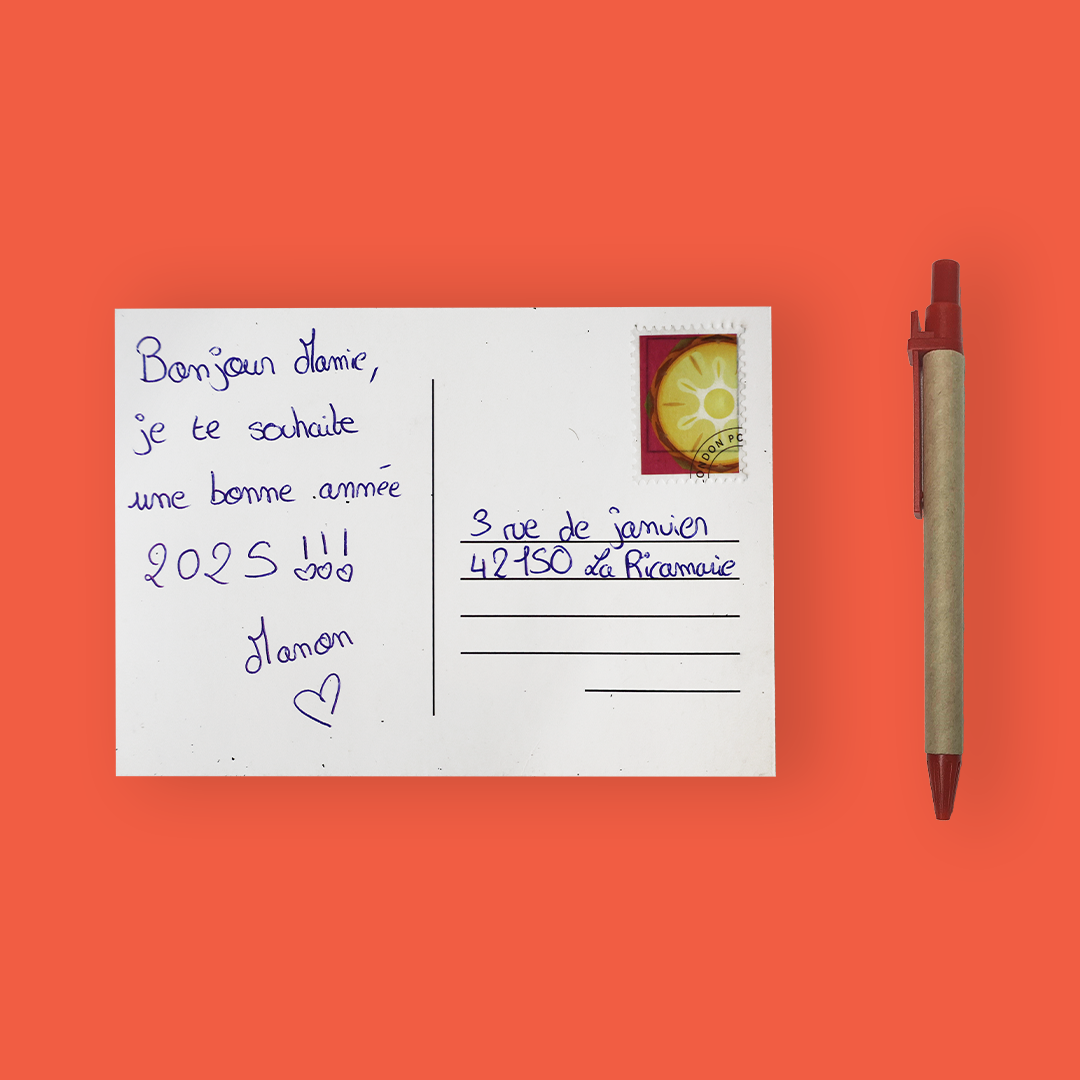 Bonjour Mamie,
je te souhaite
une bonne année
2025 !!!
Manon
ONDON PO
3 rue de janvier
42150 La Ricamarie